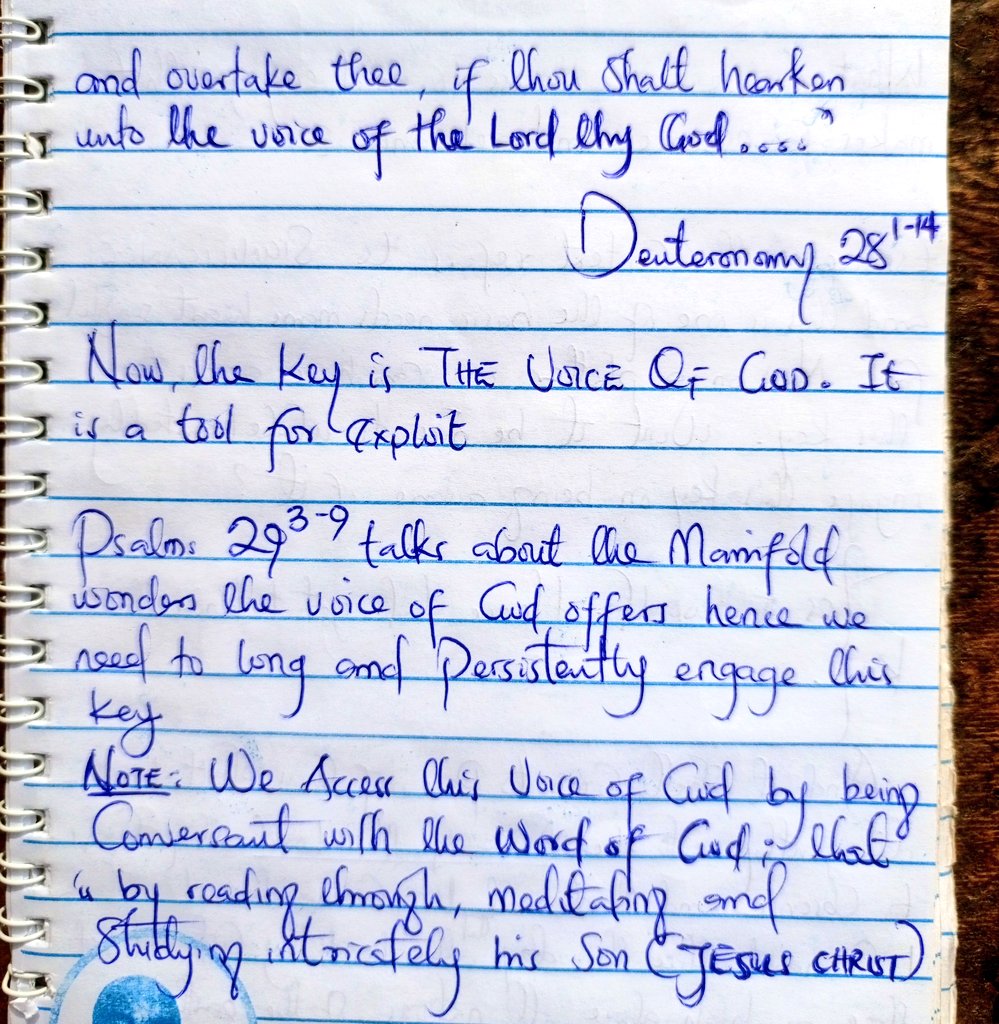 and overtake thee, if thou shalt hearken
unto the voice of the Lord thy God...."
Deuteronomy 28 1-14
Now, the key is THE VOICE OF GOD. It
is a tool for exploit
Psalms 29 3-9 talks about the Manifold
wonders the voice of God offers hence we
need to long and persistently engage this
key
NOTE: We Access this Voice of God by being
Conversant with the Word of God; that
is by reading through, meditating and
Studying intricately his Son (JESUS CHRIST)